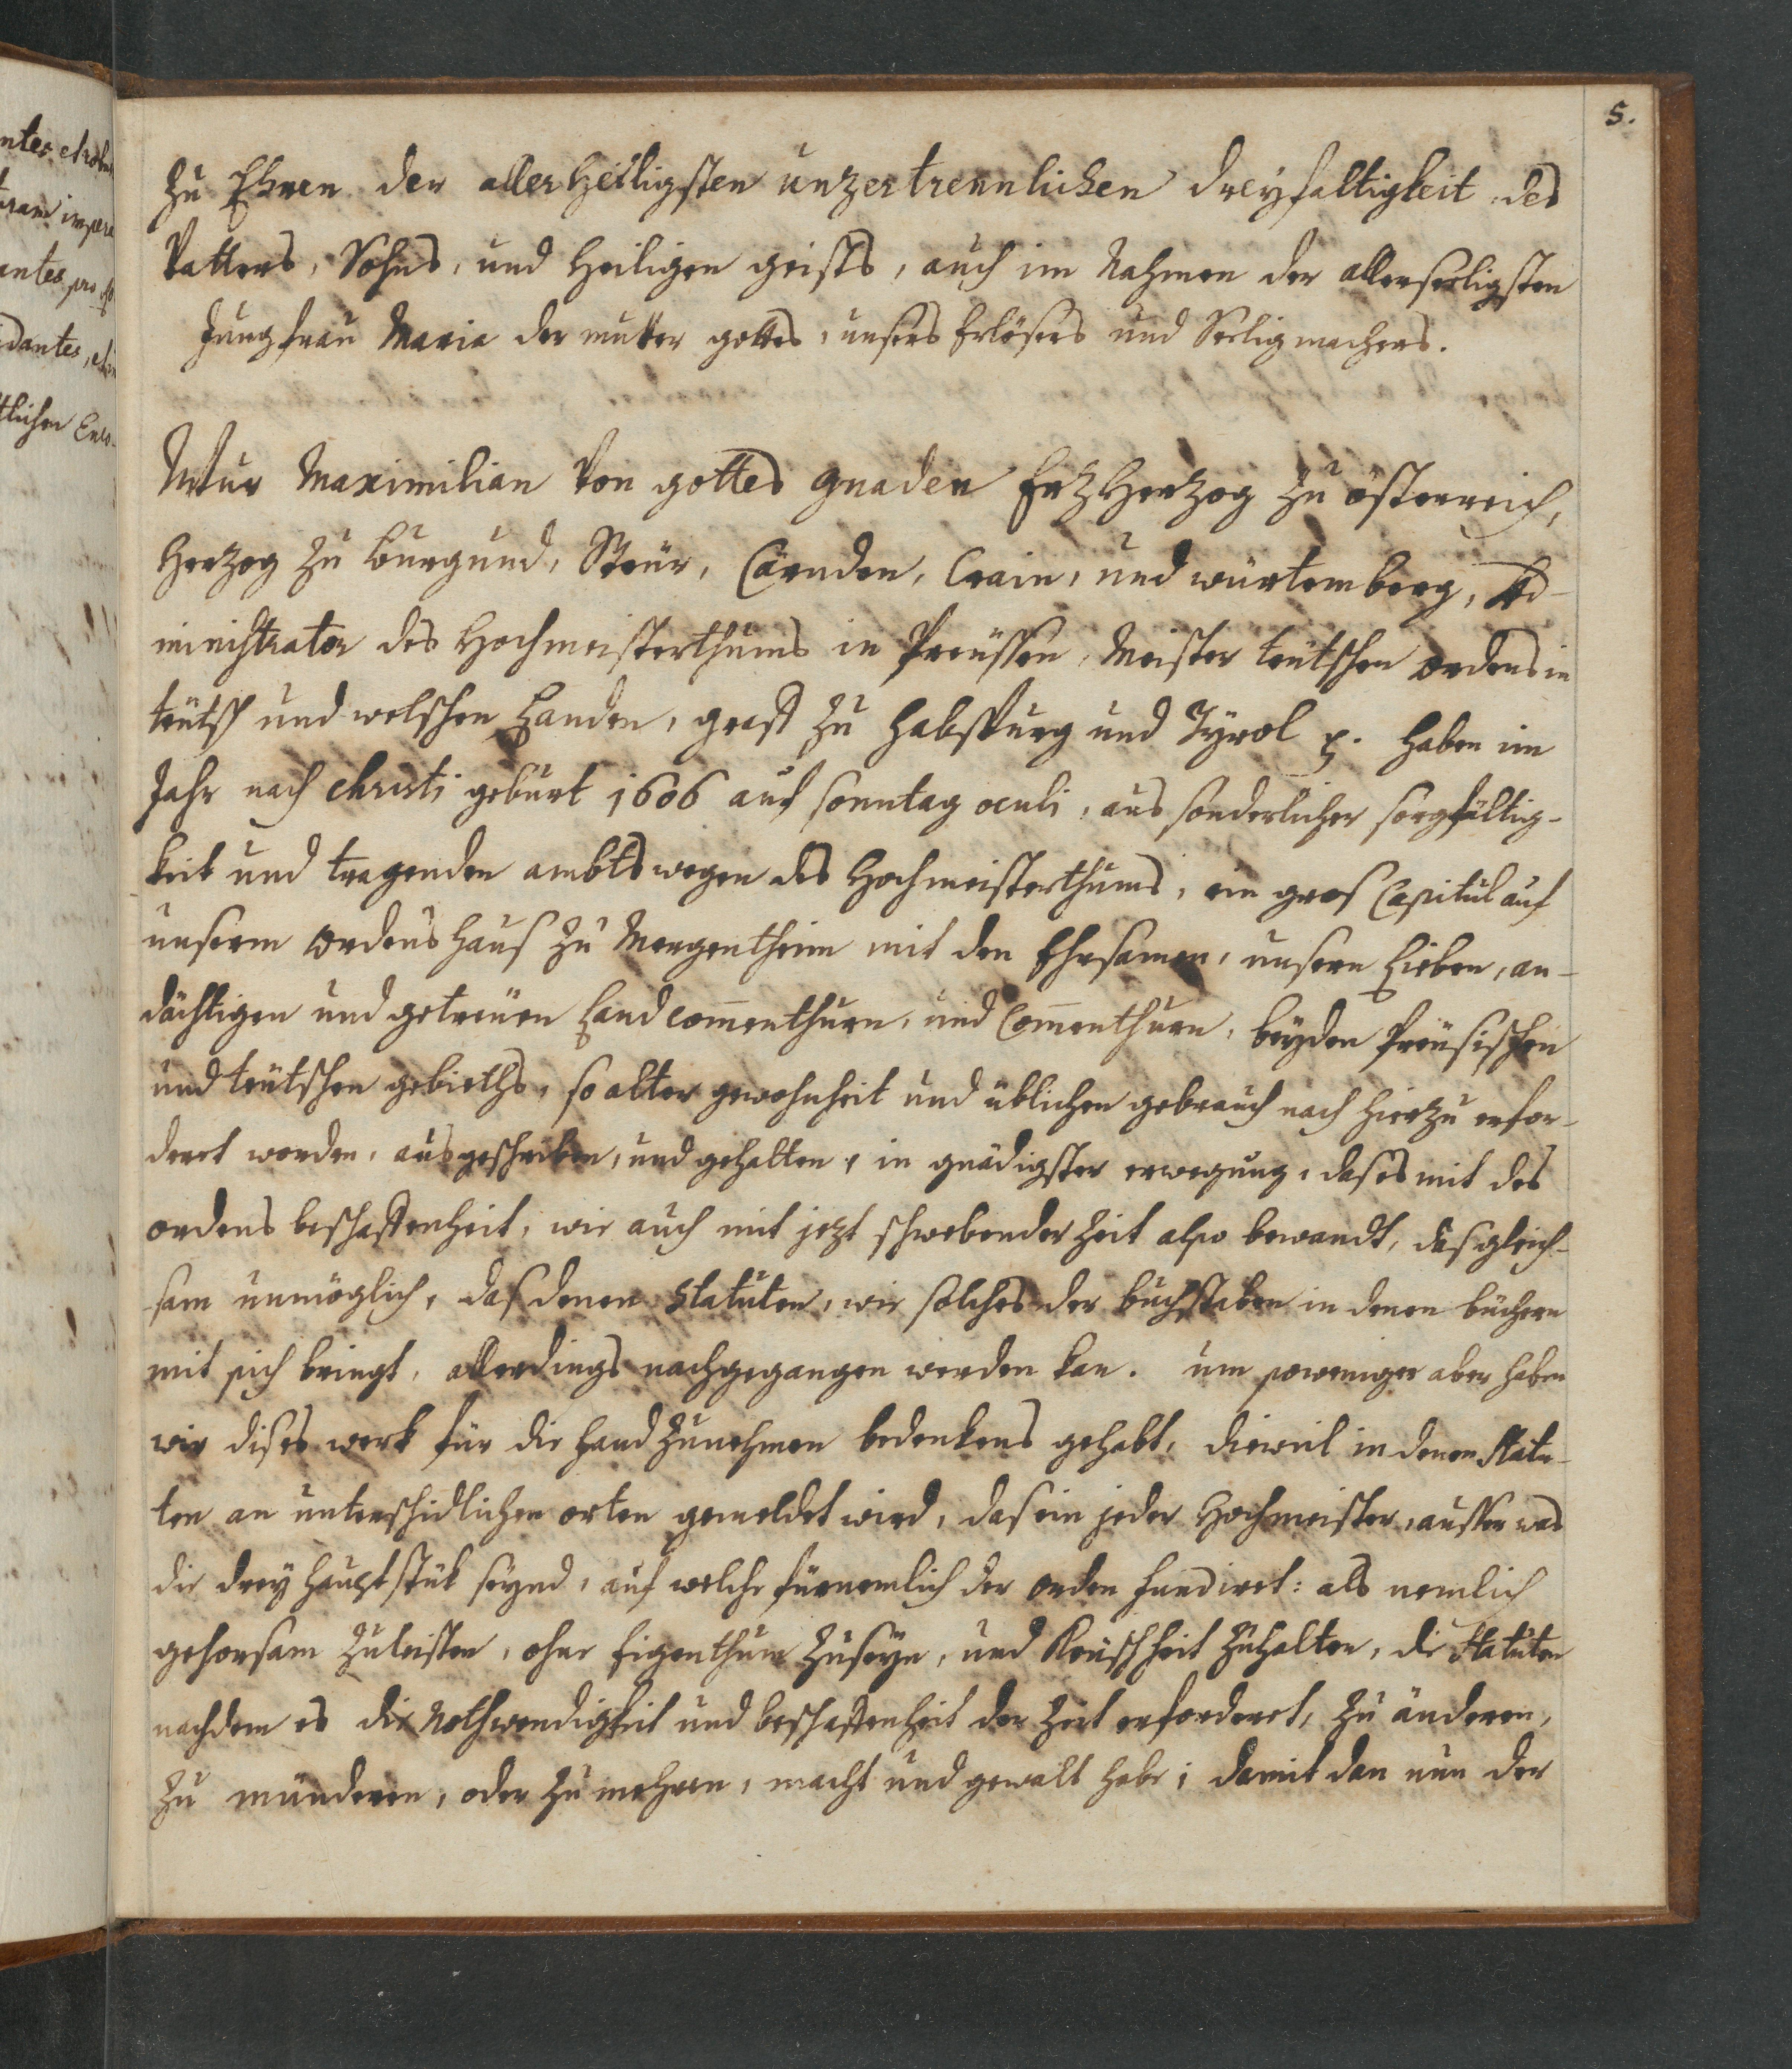 5.
Zu Ehren der allerheiligsten unzertrennlichen dreyfaltigkeit des
Vatters, Sohns, und Heiligen geists, auch im Nahmen der allerseeligsten
Jungfrau Maria der mutter gottes, unsers Erlösers und Seeligmachers.
Wür Maximilian Von gottes gnaden ErzHerzog zu österreich,
Herzog zu Burgund, Steür, Cärnden, Crain, und würtemberg, Ad-
ministrator des Hochmeisterthums in Preüssen, Meister teütschen ordens in
teütsch und welschen Landen, graff zu Habspurg und Tÿrol p. haben im
Jahr nach Christi geburt 1606 auf sonntag oculi, aus sonderlicher sorgfältig-
keit und tragenden ambts wegen des Hochmeisterthums, ein gros Capitul auf
unserm ordens haus zu Mergentheim mit den Ehrsamen, unsern Lieben, an-
dächtigen und getreüen Landcommenthurn, und Commenthurn, beyden Preüsischen
und teütschen gebieths, so alter gewohnheit und üblichen gebrauch nach hierzu erfor-
dert worden, ausgeschriben, und gehalten, in gnädigster erwegung, das es mit des
ordens beschaffenheit, wie auch mit jezt schwebender Zeit also bewandt, das gleich-
sam unmöglich, das denen Statuten, wie solches der buchstaben in denen büchern
mit sich bringt, allerdings nachgegangen werden kan. um soweniger aber haben
wir dises werk für die hand zunehmen bedenkens gehabt, dieweil in denen Statu-
ten an unterschidlichen orten gemeldet wird, das ein jeder Hochmeister, ausser was
die drey hauptstük seynd, auf welche fürnemlich der orden fundiret: als nemlich
gehorsam zuleisten, ohne Eigenthum zuseyn, und Keüschheit zuhalten, die Statuten
nachdem es die Nothwendigkeit und beschaffenheit der Zeit erfordert, zu änderen,
zu münderen, oder zu mehren, macht und gewalt habe; damit dan nun der